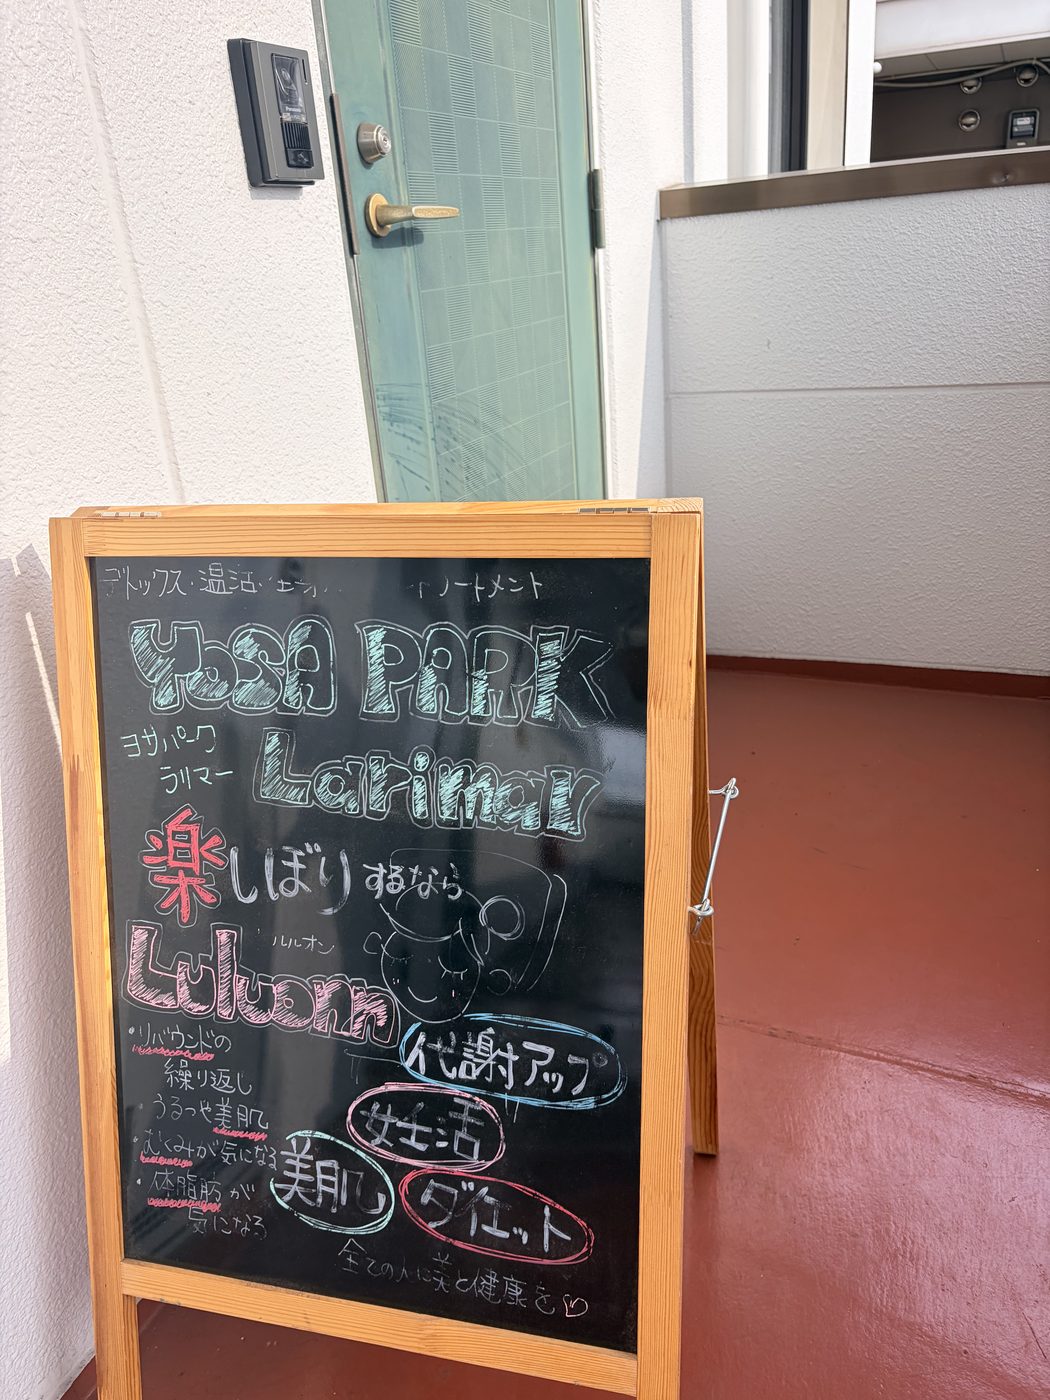 デトックス・温活・
トメント
YOSA PARK
ヨサパーク
ラリマー
Larimar
楽しぼりするなら
Luluonn
ルルオン
・リバウンドの
繰り返し
うるつや美肌
・むくみが気になる
・体脂肪が
気になる
代謝アップ
妊活
美肌
ダイエット
全ての人に美と健康を♡
Panasonic